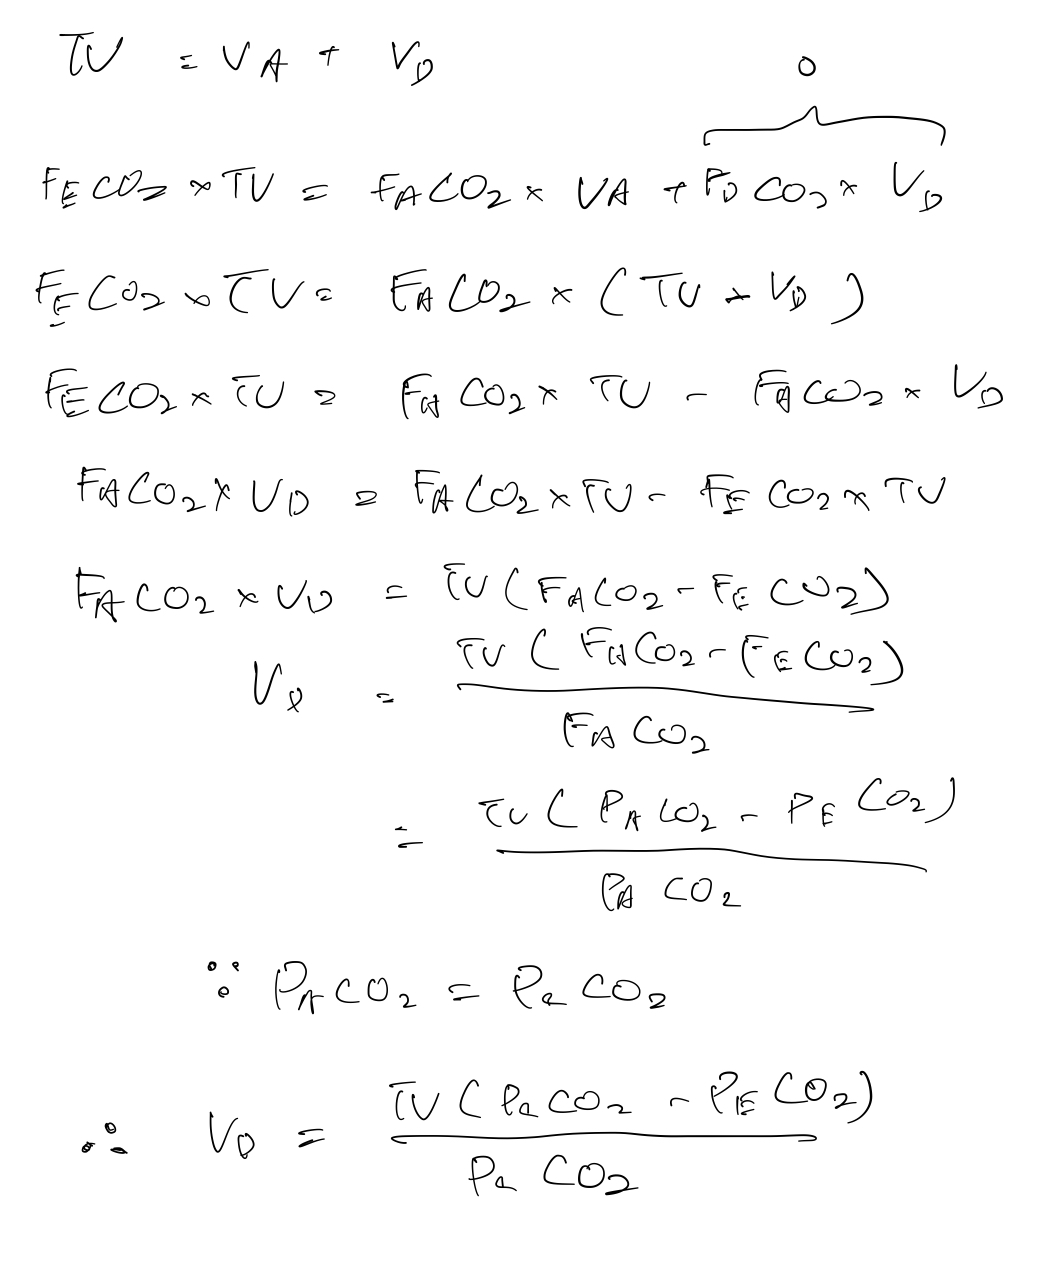 TV = VA + V_D
0
F_E CO2 × TV = F_A CO2 × VA + F_D CO2 × V_D
F_E CO2 × TV = F_A CO2 × (TV + V_D)
F_E CO2 × TV = F_A CO2 × TV - F_A CO2 × V_D
F_A CO2 × V_D = F_A CO2 × TV - F_E CO2 × TV
F_A CO2 × V_D = TV (F_A CO2 - F_E CO2)
V_D = TV (F_A CO2 - (F_E CO2) / F_A CO2
= TV (P_A CO2 - P_E CO2) / P_A CO2
∵ P_A CO2 = P_a CO2
∴ V_D = TV (P_a CO2 - P_E CO2) / P_a CO2